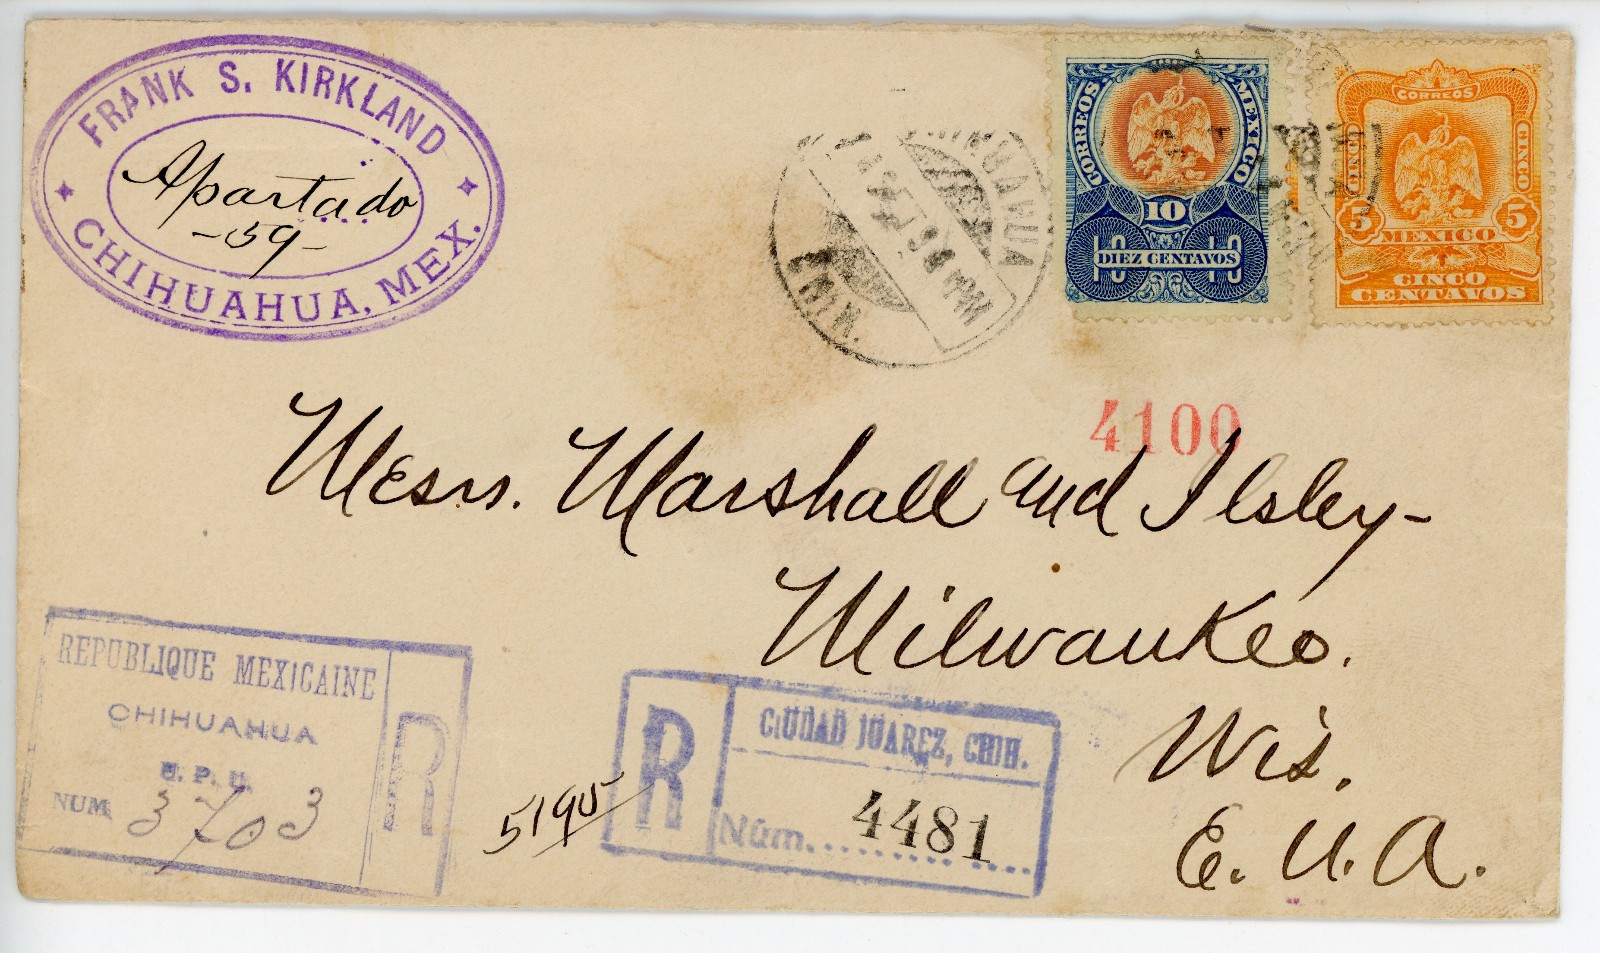 FRANK S. KIRKLAND
Apartado
-59-
CHIHUAHUA, MEX.
CHIHUAHUA
CHIH.
CORREOS MEXICO
10
10 10
DIEZ CENTAVOS
CORREOS
CINCO CINCO
5 5
MEXICO
CINCO
CENTAVOS
4100
Messrs. Marshall and Ilsley-
Milwaukee.
Wis.
E. U. A.
REPUBLIQUE MEXICAINE
CHIHUAHUA
U. P. U.
NUM 3703
R
5195
R
CIUDAD JUAREZ, CHIH.
Núm. 4481